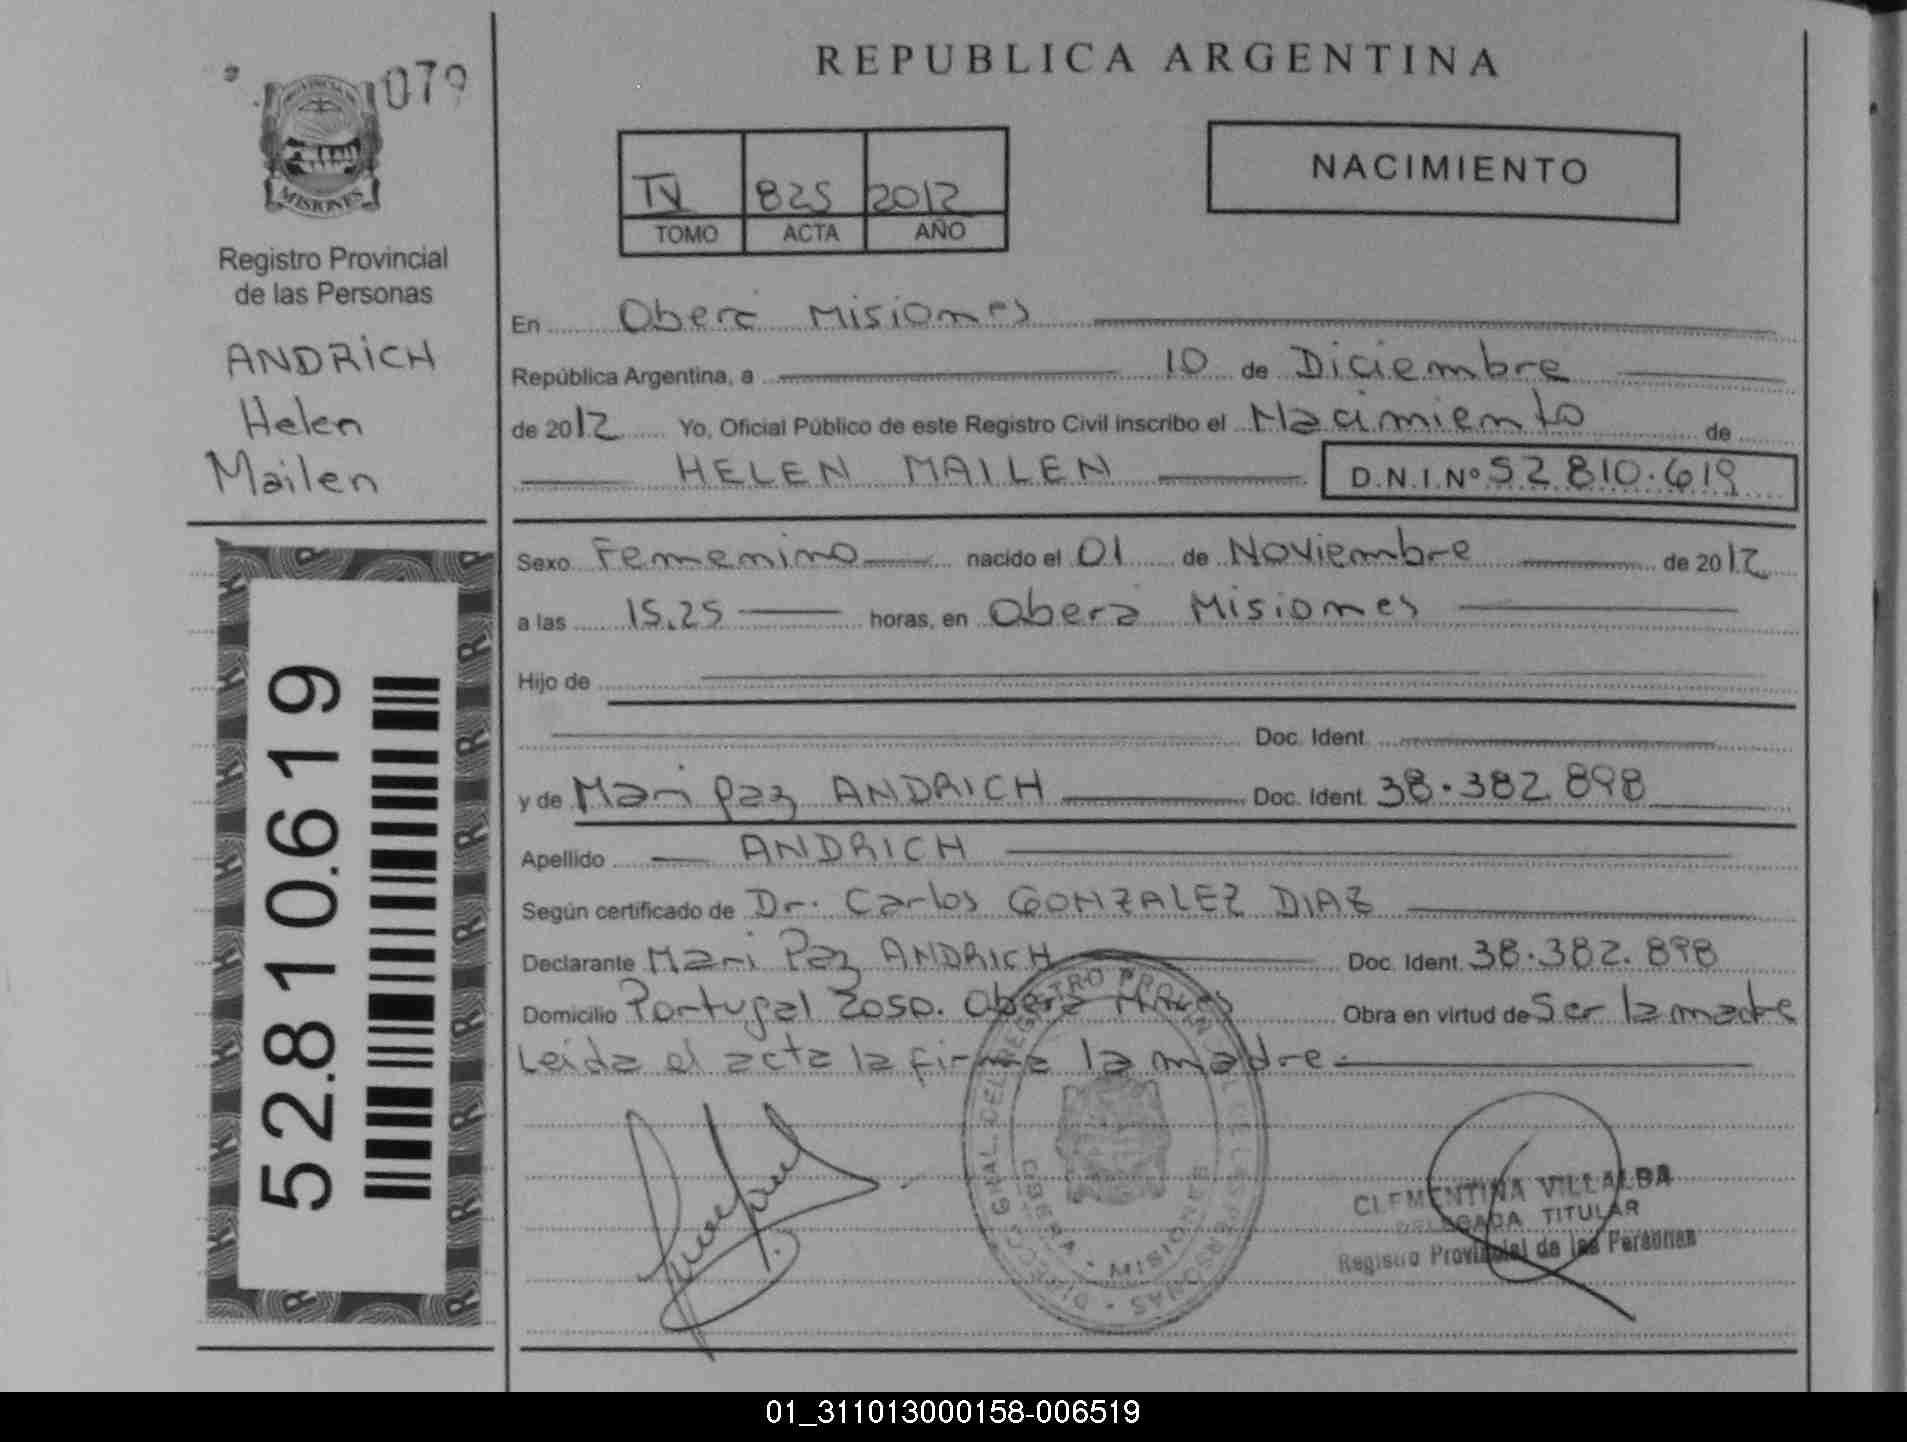 079
MISIONES
Registro Provincial
de las Personas
ANDRICH
Helen
Mailen
52.810.619
REPUBLICA ARGENTINA
NACIMIENTO
IV 825 2012
TOMO ACTA AÑO
En Oberá Misiones
República Argentina, a 10 de Diciembre
de 2012 Yo, Oficial Público de este Registro Civil inscribo el Nacimiento de
HELEN MAILEN D.N.I.Nº 52.810.619
Sexo Femenino nacido el 01 de Noviembre de 2012
a las 15.25 horas, en Oberá Misiones
Hijo de
Doc. Ident.
y de Mari Paz ANDRICH Doc. Ident. 38.382.898
Apellido ANDRICH
Según certificado de Dr. Carlos GONZALEZ DIAZ
Declarante Mari Paz ANDRICH Doc. Ident. 38.382.898
Domicilio Portugal Oberá Mnes Obra en virtud de Ser la madre
Leida el acta la firma la madre.
OBERA - MISIONES
CLEMENTINA VILLALBA
DELEGADA TITULAR
Registro Provincial de las Personas
01_311013000158-006519